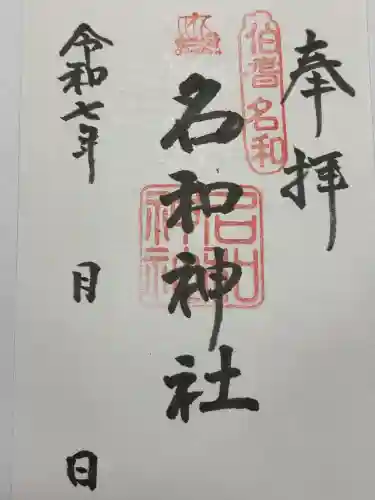 奉拝
伯耆 名和
名和神社
名和神社
令和七年 月 日